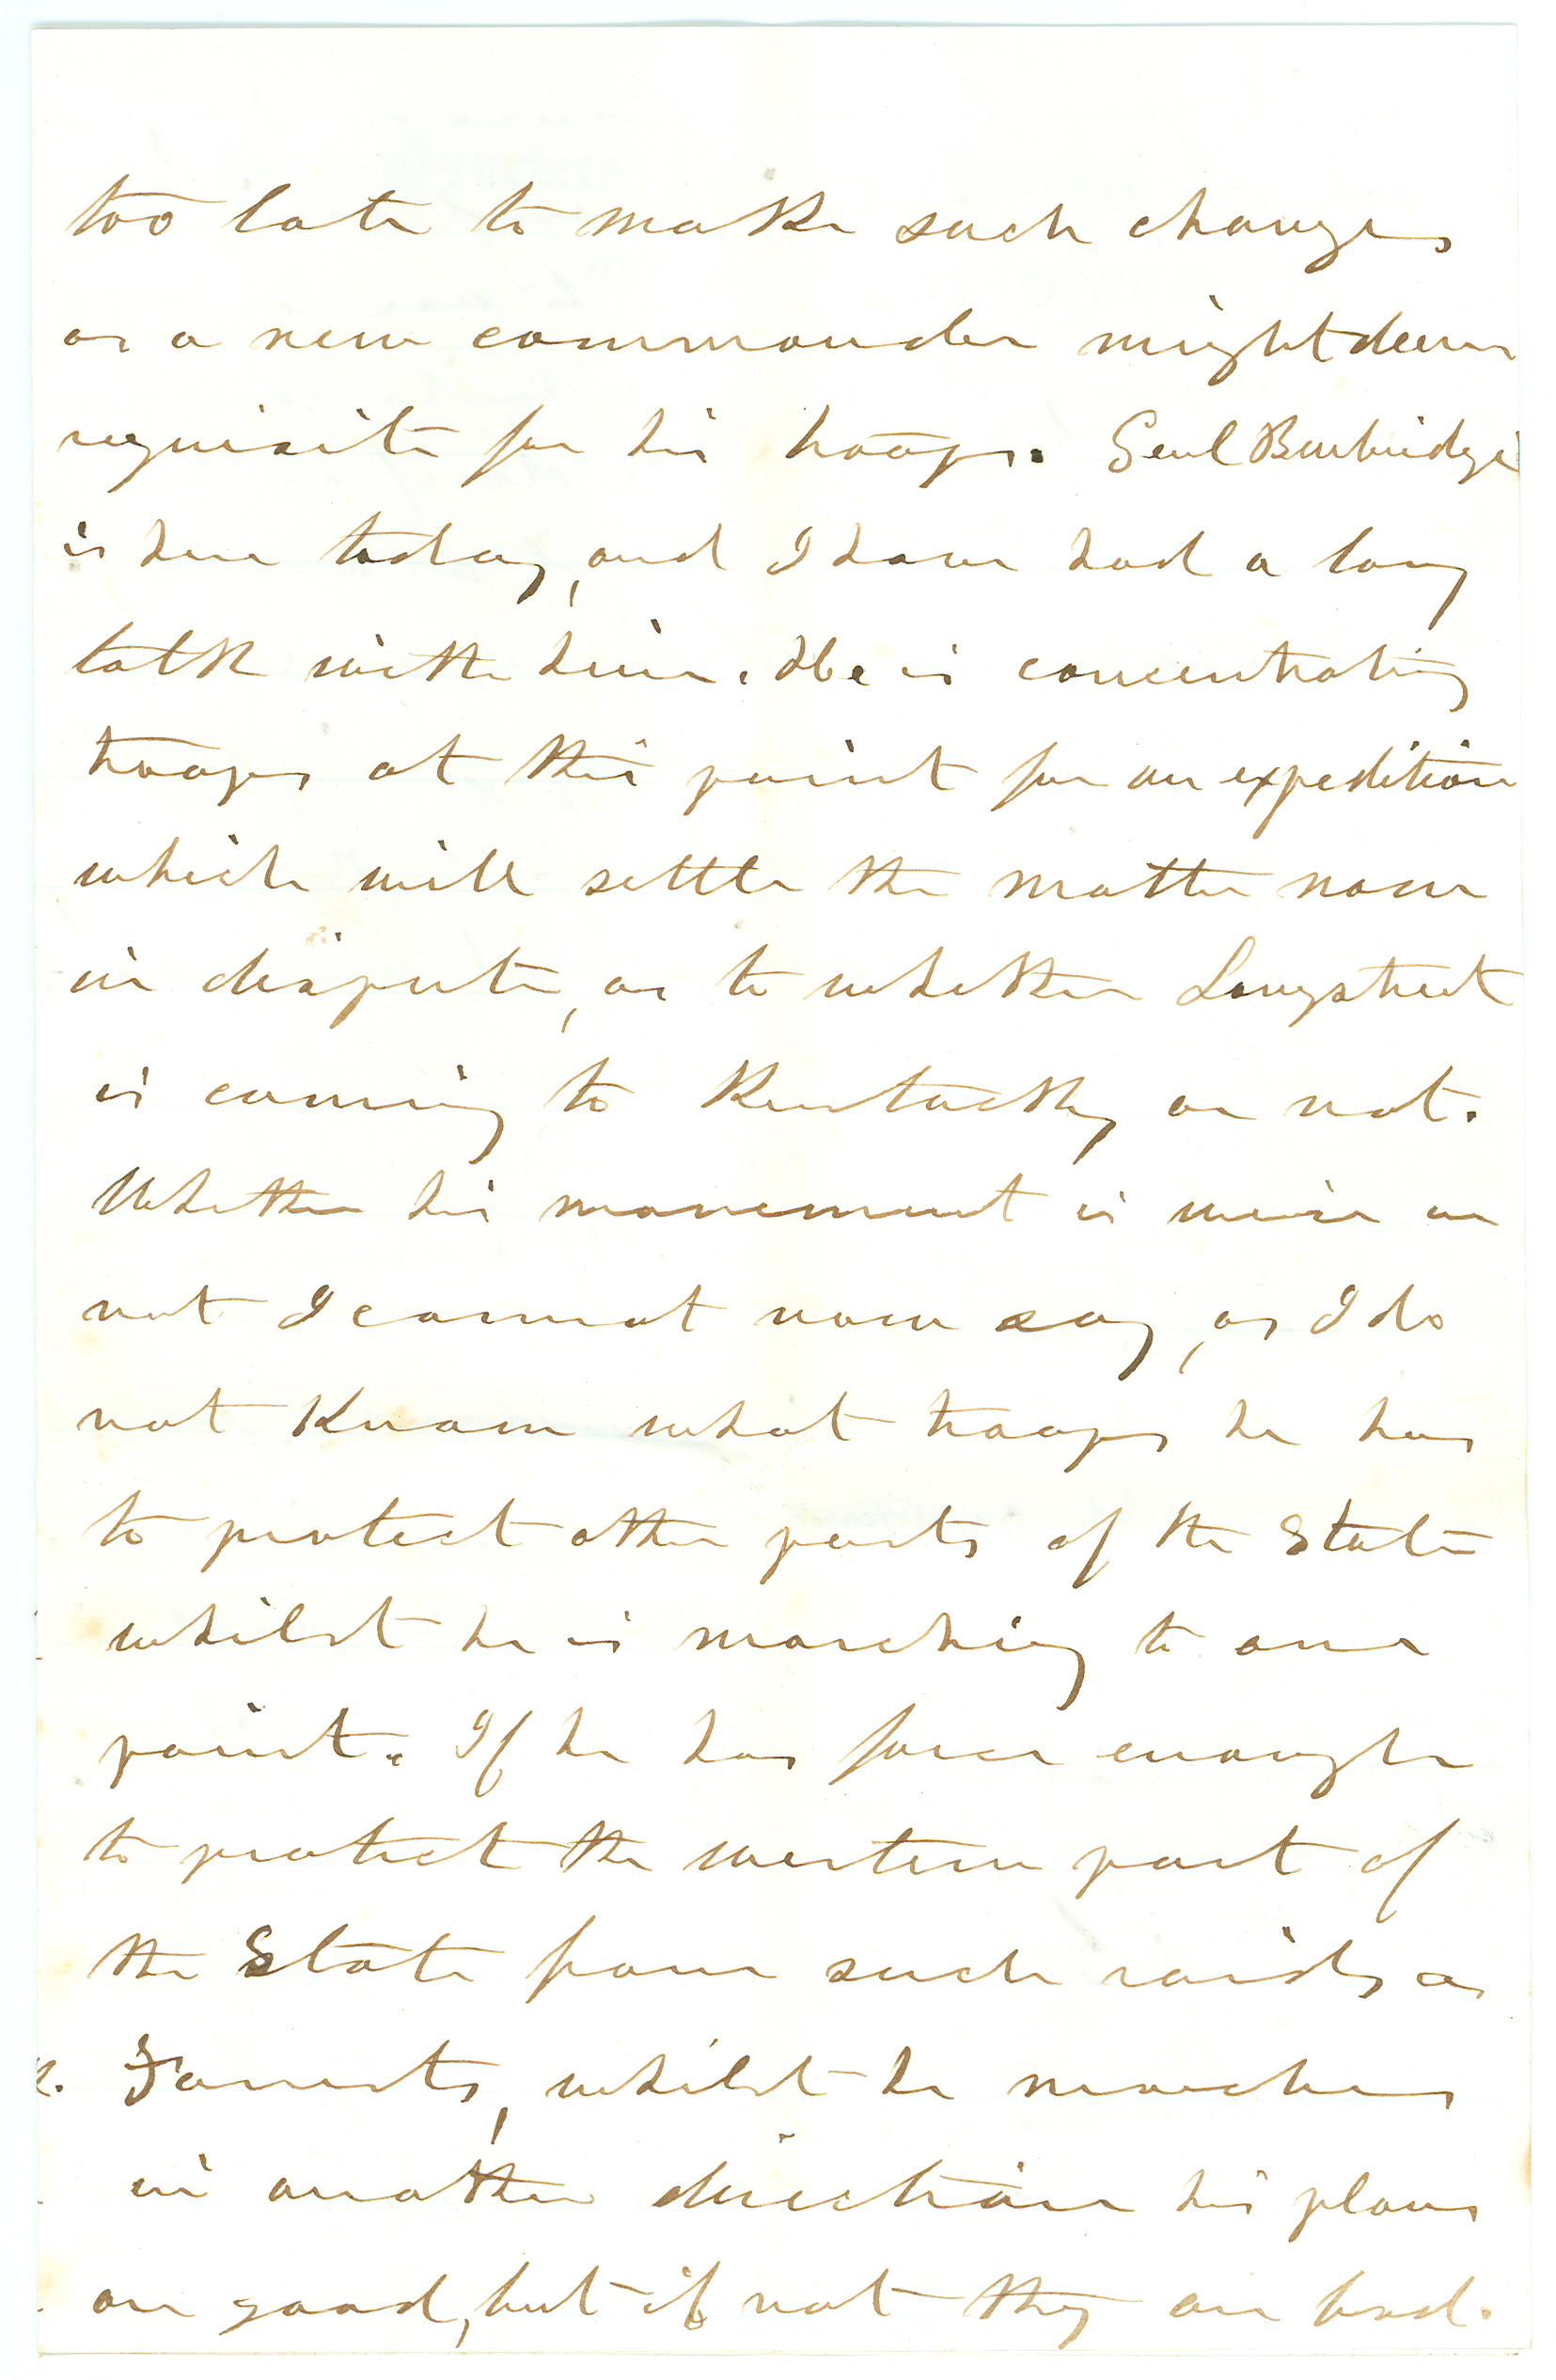 too late to make such changes
as a new commander might deem
requisite for his troops. Genl Burbridge
is here today, and I have had a long
talk with him. He is concentrating
troops at this point for an expedition
which will settle the matter now
in dispute, as to whether Longstreet
is coming to Kentucky or not.
Whether his movement is wise or
not I cannot now say, as I do
not know what troops he has
to protect other parts of the State
whilst he is marching to one
point. If he has force enough
to protect the western part of
the State from such raids as
Forrests, whilst he marches
in another direction his plans
are good, but if not they are bad.